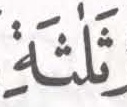 ثَلٰثَةِ